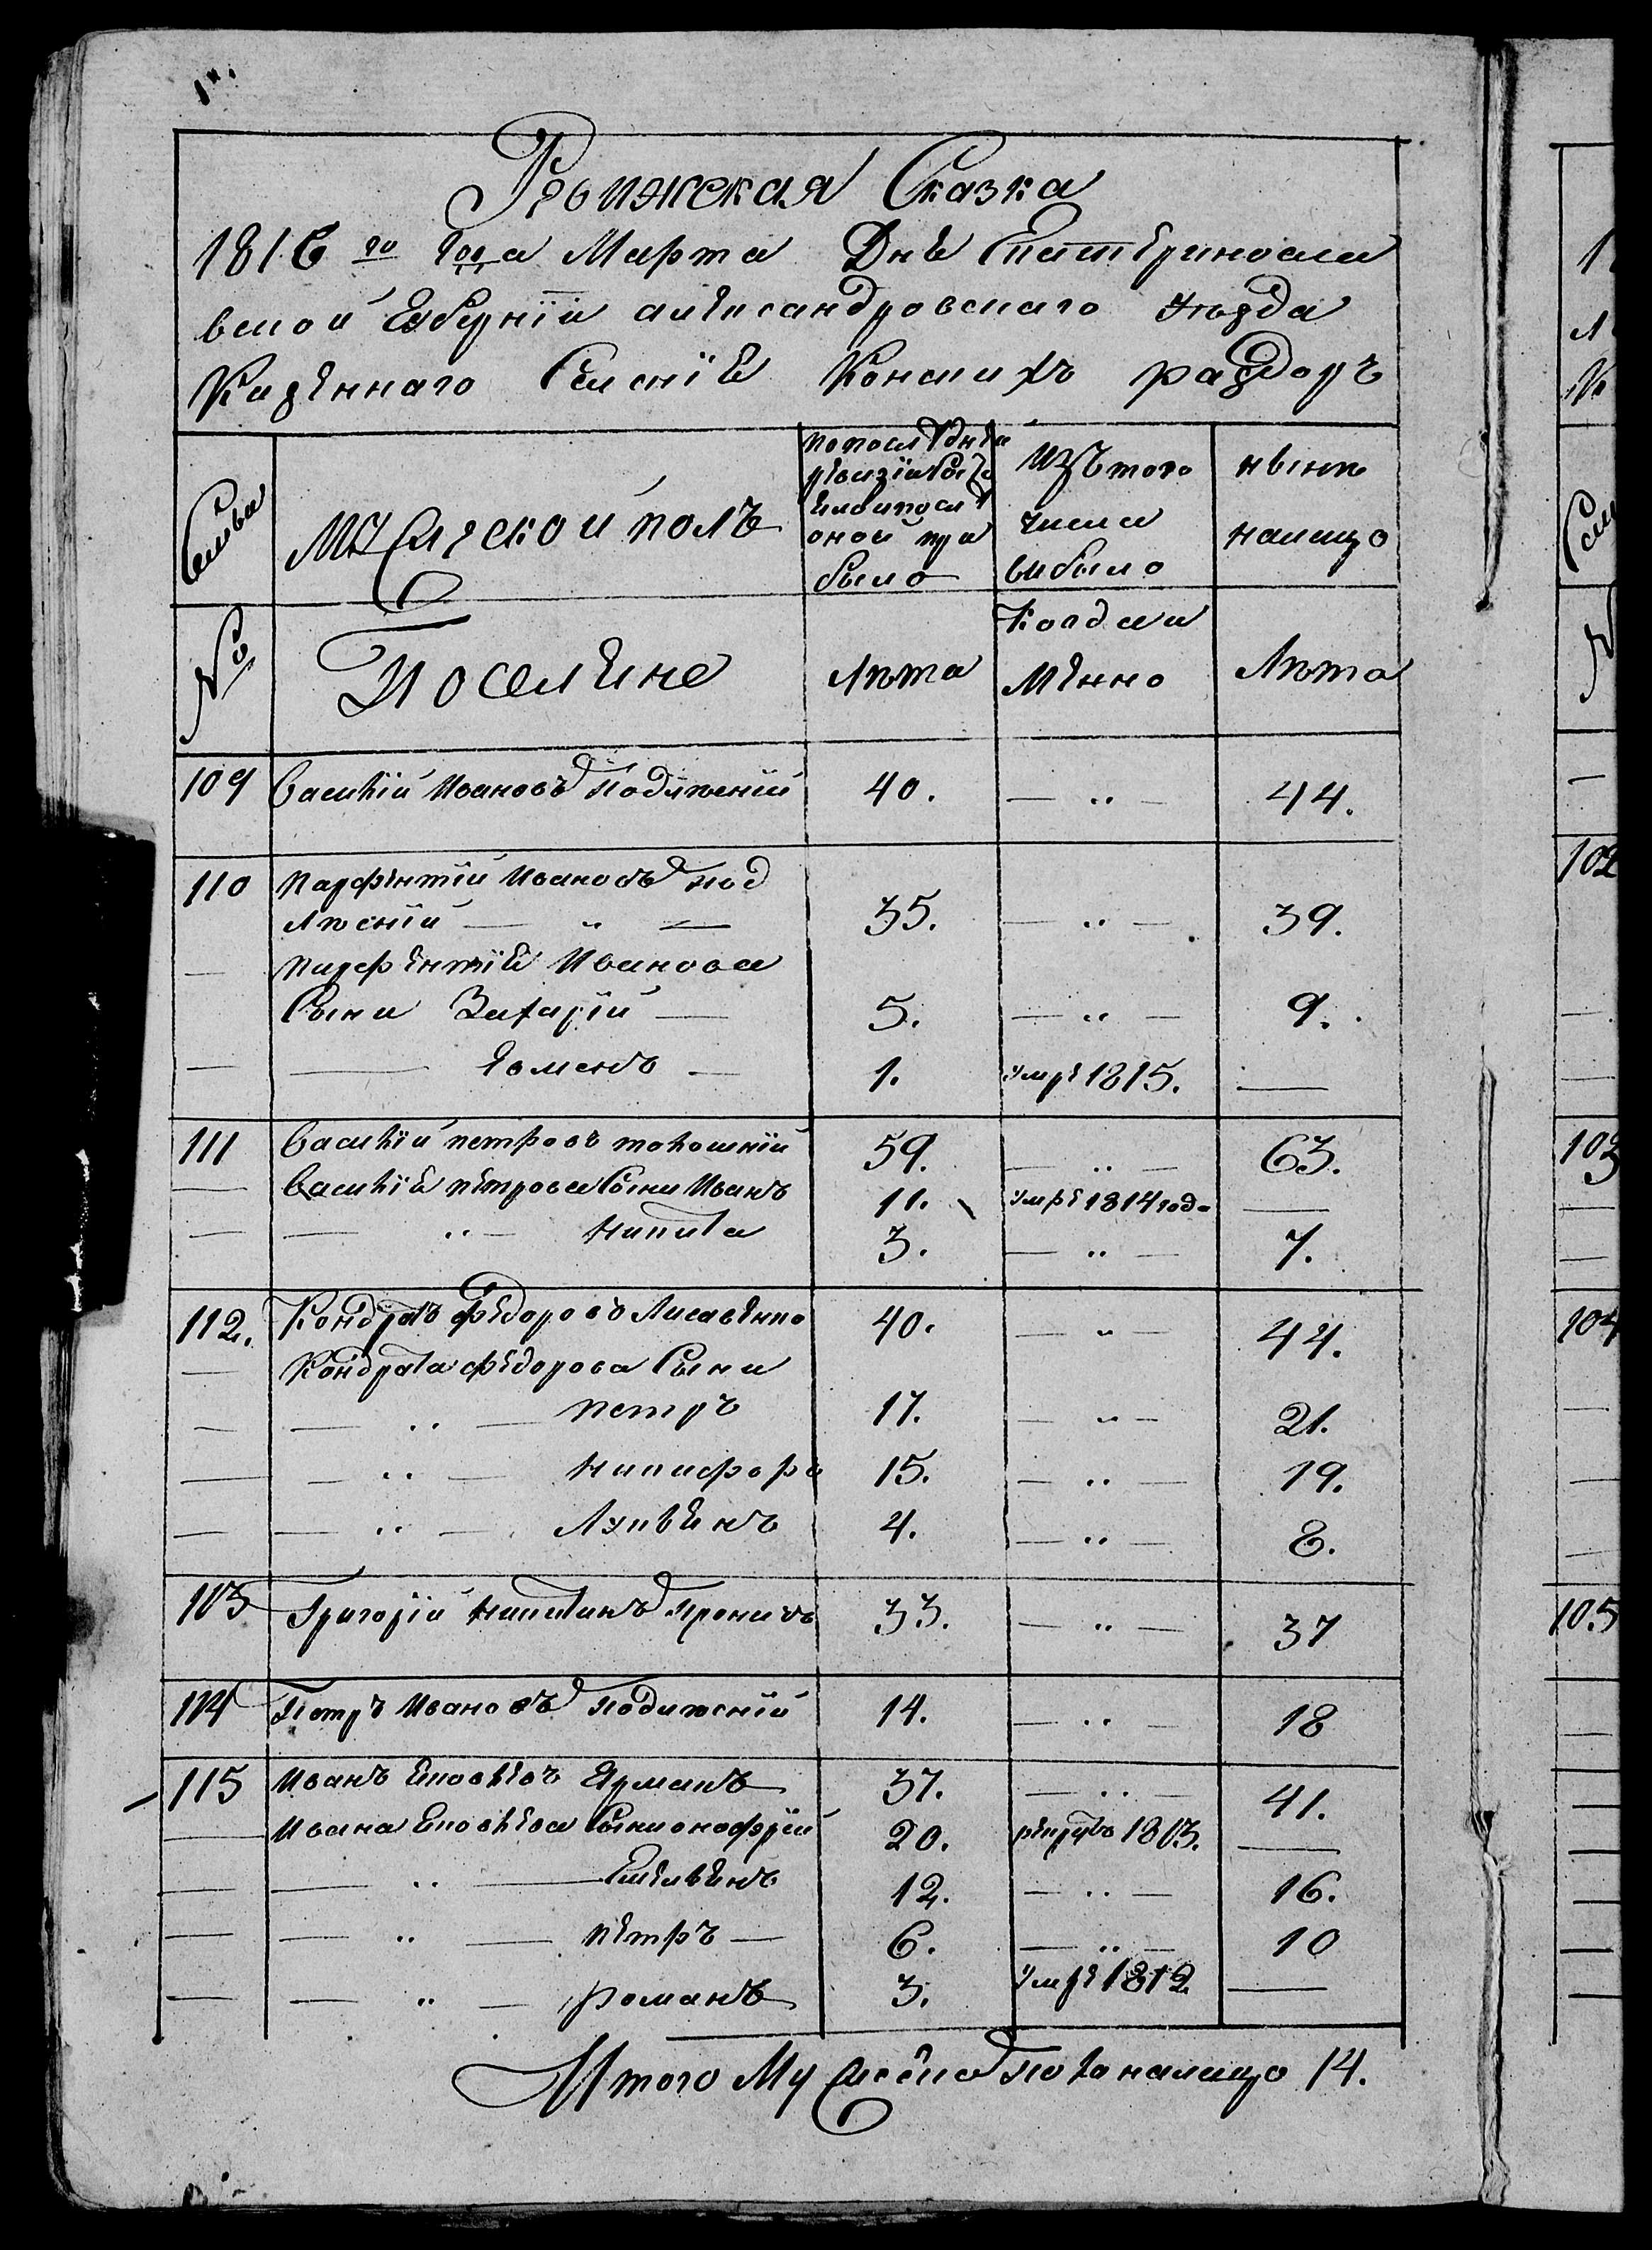 Ревижская Сказка
1816 го года Марта Дня Екатериносла
вской Губернии александровскаго уезда
Казеннаго Селения Конских раздоръ
Семьи
Мужескои полъ
по последней
ревизии состо
яло и после
оной при
было
Изъ того
числа
выбыло
ныне
налицо
№
Поселяне
Лета
Когда и
Мянно
Лета
109 Василий Ивановъ Подляский 40. — „ — 44.
110 Парфентий Ивановъ под
ляский — „ — 35. — „ — 39.
— Парфентия Иванова
Сыны Захарий — 5. — „ — 9.
— — Евменъ — 1. умре 1815. —
111 Василий петровъ токошний 59. — „ — 63.
— Василия петрова Сыны Иванъ 11. умре 1814 года —
— — „ — Никита 3. — „ — 7.
112. Кондратъ федоровъ Лисавенко 40. — „ — 44.
— Кондрата федорова Сыны
— — „ — петръ 17. — „ — 21.
— — „ — Никифоръ 15. — „ — 19.
— — „ — Лукьянъ 4. — „ — 8.
113 Григорий Никитинъ Проничъ 33. — „ — 37
114 Петръ Ивановъ Подляский 14. — „ — 18
115 Иванъ Яковлевъ Ярмакъ 37. — „ — 41.
— Ивана Яковлева Сыны онофрий 20. рекрутъ 1813. —
— — „ — Емельянъ 12. — „ — 16.
— — „ — петръ — 6. — „ — 10
— — „ — романъ 3. умре 1812 —
Итого Мужеска пола налицо 14.
102
103
104
105